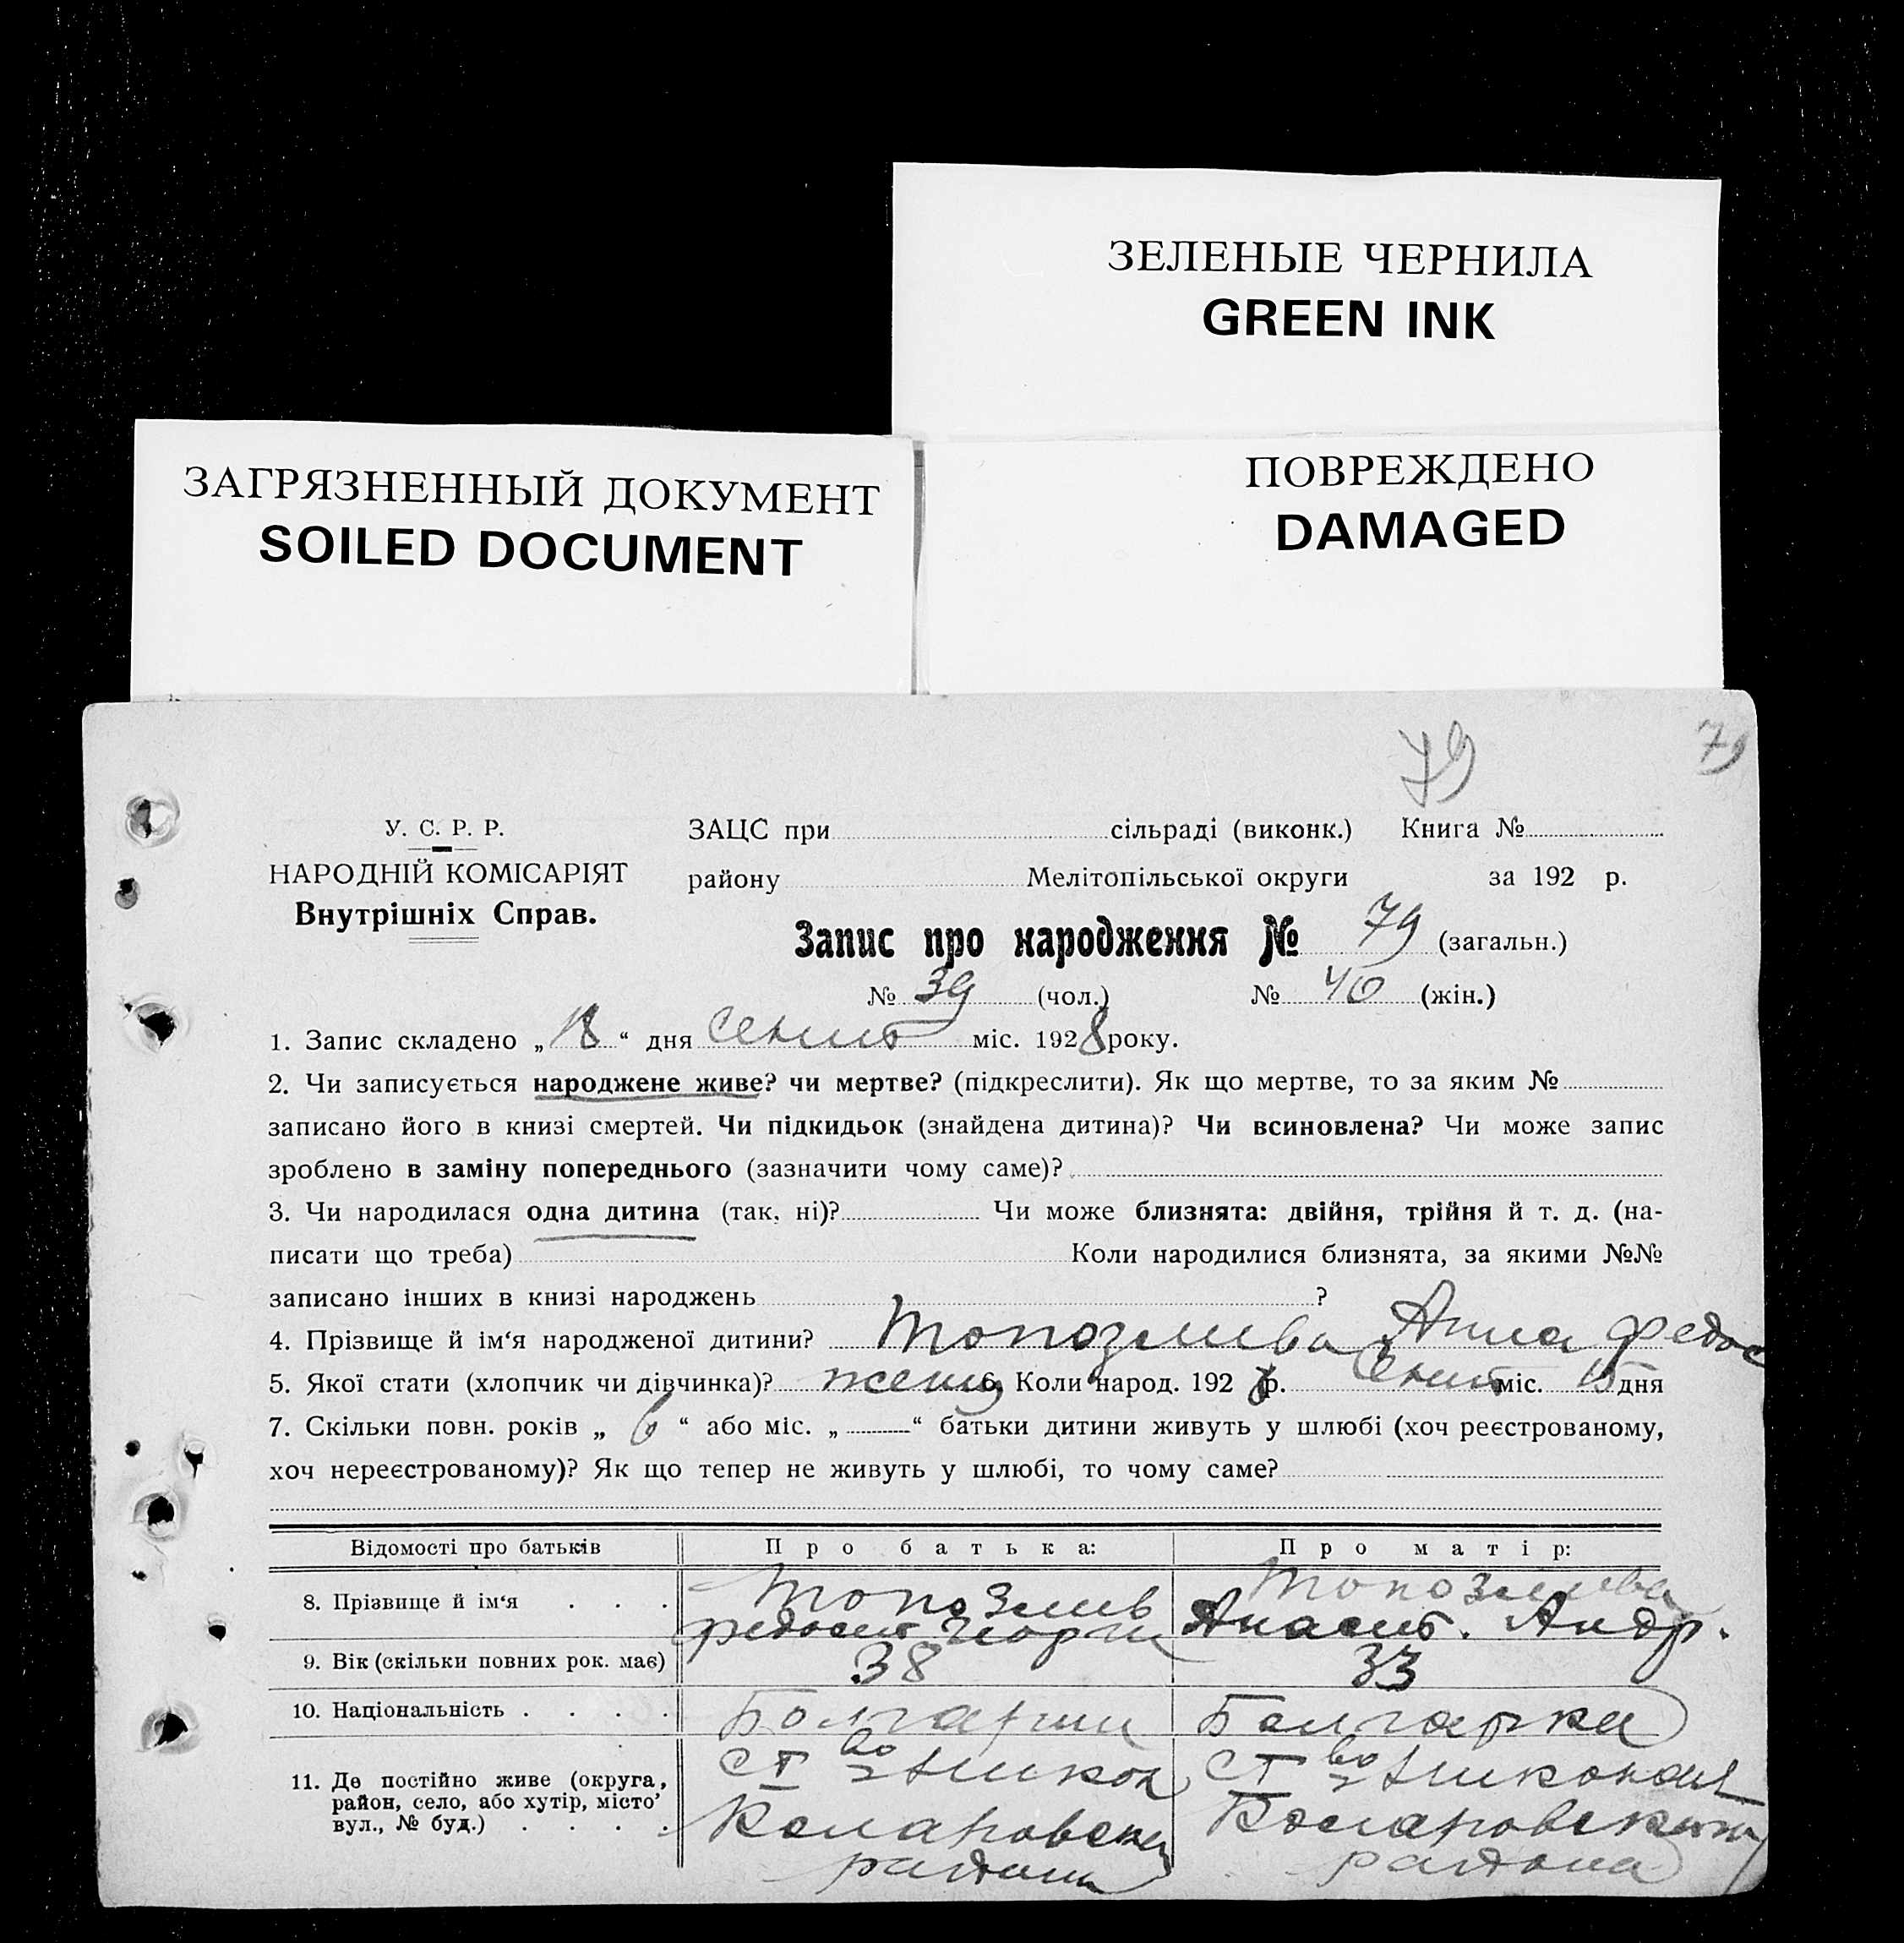 ЗЕЛЕНЫЕ ЧЕРНИЛА
GREEN INK
ЗАГРЯЗНЕННЫЙ ДОКУМЕНТ
SOILED DOCUMENT
ПОВРЕЖДЕНО
DAMAGED
79
79
У. С. Р. Р.
НАРОДНІЙ КОМІСАРІЯТ
Внутрішніх Справ.
ЗАЦС при сільраді (виконк.) Книга №
району Мелітопільської округи за 192 р.
Запис про народження № 79 (загальн.)
№ 39 (чол.) № 40 (жін.)
1. Запис складено „18“ дня Сент міс. 1928 року.
2. Чи записується народжене живе? чи мертве? (підкреслити). Як що мертве, то за яким №
записано його в книзі смертей. Чи підкидьок (знайдена дитина)? Чи всиновлена? Чи може запис
зроблено в заміну попереднього (зазначити чому саме)?
3. Чи народилася одна дитина (так, ні)? Чи може близнята: двійня, трійня й т. д. (на-
писати що треба) Коли народилися близнята, за якими №№
записано інших в книзі народжень ?
4. Прізвище й ім‘я народженої дитини? Топозлива Анна Федос
5. Якої стати (хлопчик чи дівчинка)? женщ 6. Коли народ. 1928 р. Сент міс. 15 дня
7. Скільки повн. років „ 6 “ або міс. „ “ батьки дитини живуть у шлюбі (хоч реєстрованому,
хоч нереєстрованому)? Як що тепер не живуть у шлюбі, то чому саме?
Відомості про батьків Про батька: Про матір:
8. Прізвище й ім‘я Топозлив Топозлиева
Федосий Георги Анаст. Андр.
9. Вік (скільки повних рок. має) 38 33
10. Національність Болгарин Болгарка
11. Де постійно живе (округа,
район, село, або хутір, місто’
вул., № буд.)
Коларовски Коларовского
района района